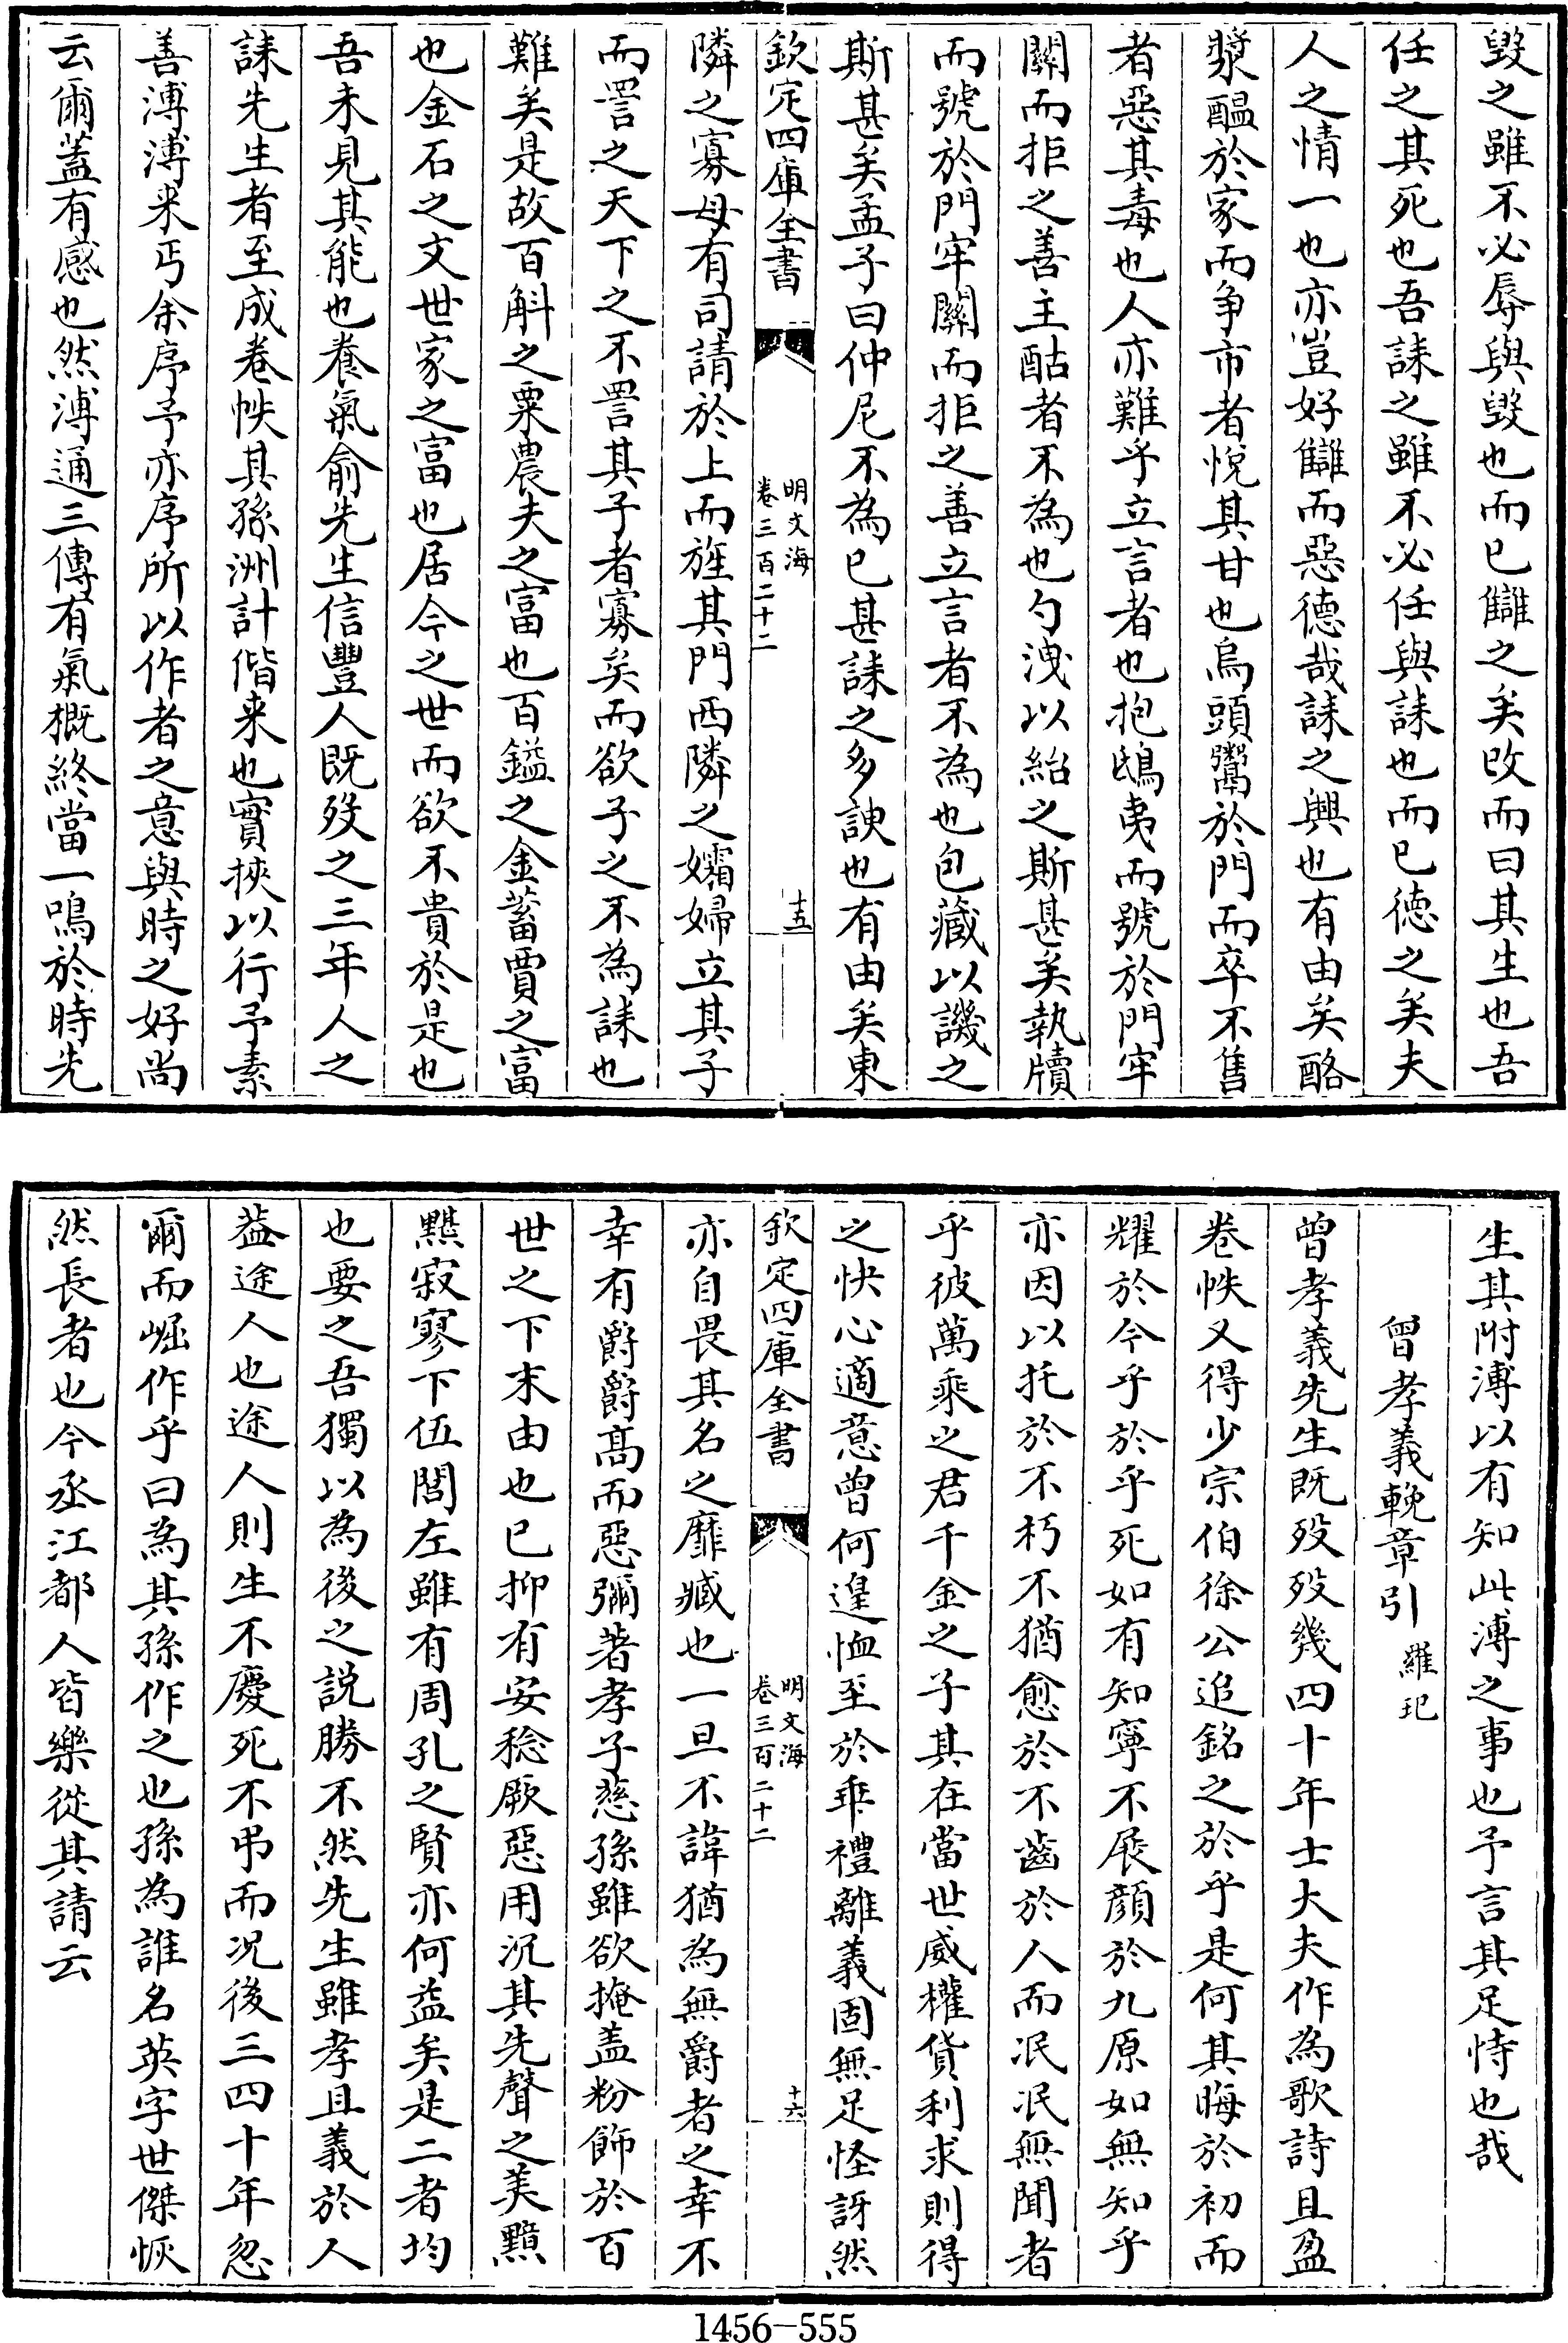 毀之雖不必辱與毀也而已讎之矣改而曰其生也吾
任之其死也吾誄之雖不必任與誄也而已德之矣夫
人之情一也亦豈好讎而惡德哉誄之興也有由矣酪
漿醖於家而爭市者悅其甘也烏頭鬻於門而卒不售
者惡其毒也人亦難乎立言者也抱鴟夷而號於門牢
關而拒之善主酤者不為也勺洩以紿之斯甚矣執牘
而號於門牢關而拒之善立言者不為也包藏以譏之
斯甚矣孟子曰仲尼不為已甚誄之多諛也有由矣東
欽定四庫全書
明文海
卷三百二十二
十五
隣之寡母有司請於上而旌其門西隣之孀婦立其子
而詈之天下之不詈其子者寡矣而欲子之不為誄也
難矣是故百斛之粟農夫之富也百鎰之金蓄賈之富
也金石之文世家之富也居今之世而欲不貴於是也
吾未見其能也養氣俞先生信豐人既歿之三年人之
誄先生者至成卷帙其孫洲計偕来也實挾以行予素
善溥溥来丐余序予亦序所以作者之意與時之好尚
云爾蓋有感也然溥通三傳有氣概終當一鳴於時先
生其附溥以有知此溥之事也予言其足恃也哉
曾孝義輓章引
羅玘
曾孝義先生既歿歿幾四十年士大夫作為歌詩且盈
卷帙又得少宗伯徐公追銘之於乎是何其晦於初而
耀於今乎於乎死如有知寧不展顔於九原如無知乎
亦因以托於不朽不猶愈於不齒於人而泯泯無聞者
乎彼萬乘之君千金之子其在當世威權貨利求則得
之快心適意曾何遑恤至於乖禮離義固無足怪訝然
欽定四庫全書
明文海
卷三百二十二
十六
亦自畏其名之靡臧也一旦不諱猶為無爵者之幸不
幸有爵爵髙而惡彌著孝子慈孫雖欲掩盖粉飾於百
世之下末由也已抑有安稔厥惡用沉其先聲之美黯
黮寂寥下伍閭左雖有周孔之賢亦何益矣是二者均
也要之吾獨以為後之説勝不然先生雖孝且義於人
葢途人也途人則生不慶死不弔而况後三四十年忽
爾而崛作乎曰為其孫作之也孫為誰名英字世傑恢
然長者也今丞江都人皆樂從其請云
1456-555